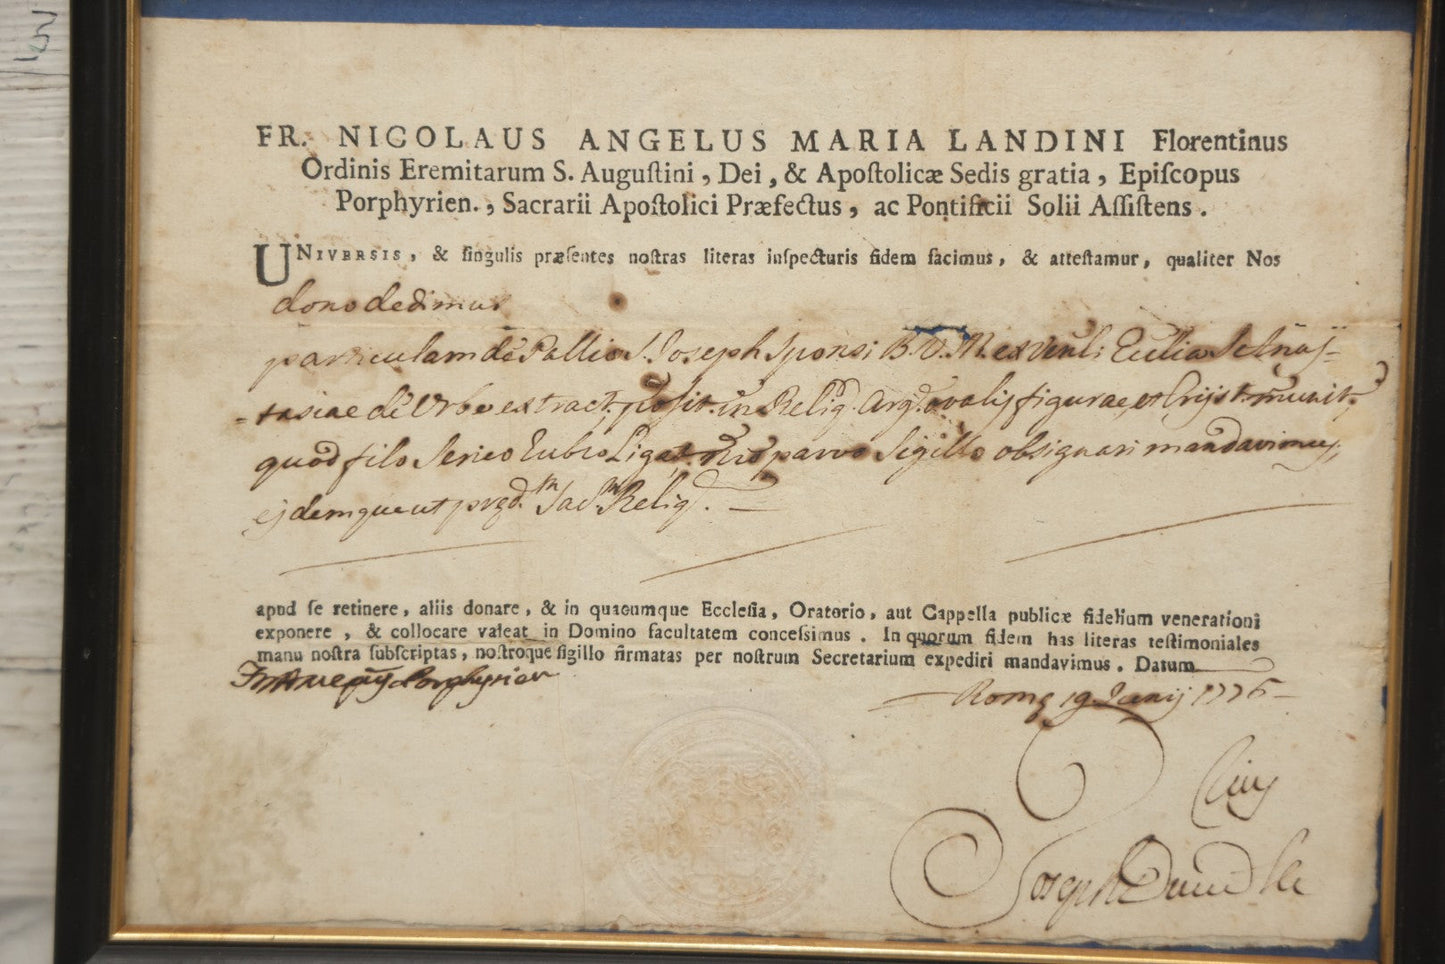 FR. NICOLAUS ANGELUS MARIA LANDINI Florentinus
Ordinis Eremitarum S. Auguſtini, Dei, & Apoſtolicæ Sedis gratia, Epiſcopus
Porphyrien., Sacrarii Apoſtolici Præfectus, ac Pontificii Solii Aſſiſtens.
UNIVERSIS, & ſingulis præſentes noſtras literas inſpecturis fidem facimus, & atteſtamur, qualiter Nos
dono dedimus
particulam de Pallio S. Joseph Sponsi B.V.M. ex Ecclia S. Anas-
-tasiae de Urbe extract. posit. in Reliq. Arg. ovalis figurae, et Cryst. munit.
quod filo serico rubro Ligat. parvo Sigillo obsignari mandavimus,
ejdemque ut præd. Sac. Reliq.
apud ſe retinere, aliis donare, & in quacumque Eccleſia, Oratorio, aut Cappella publicæ fidelium venerationi
exponere, & collocare valeat in Domino facultatem conceſſimus. In quorum fidem has literas teſtimoniales
manu noſtra ſubſcriptas, noſtroque ſigillo firmatas per noſtrum Secretarium expediri mandavimus. Datum
Romę 19 Junij 1776
Porphyrien
Joseph